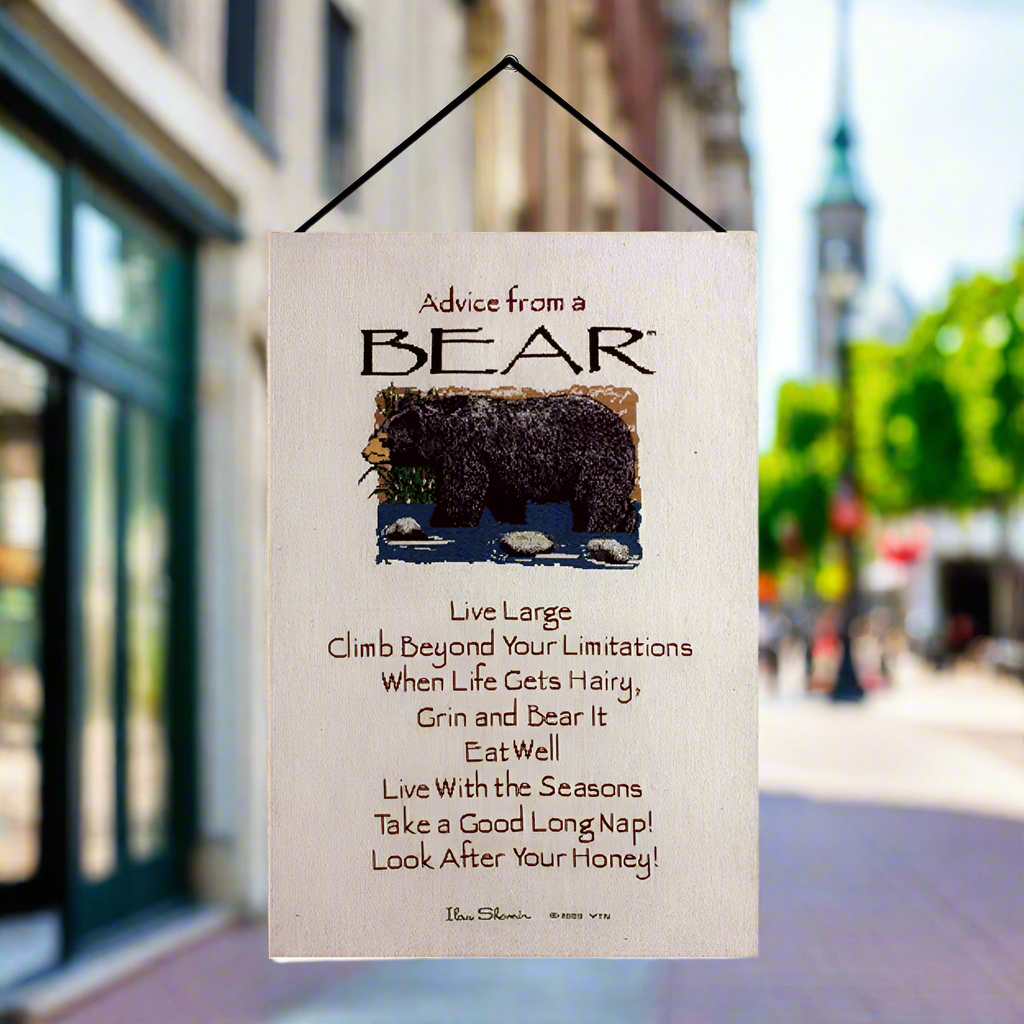 Advice from a
BEAR™
Live Large
Climb Beyond Your Limitations
When Life Gets Hairy,
Grin and Bear It
Eat Well
Live With the Seasons
Take a Good Long Nap!
Look After Your Honey!
Ilan Shamir ©